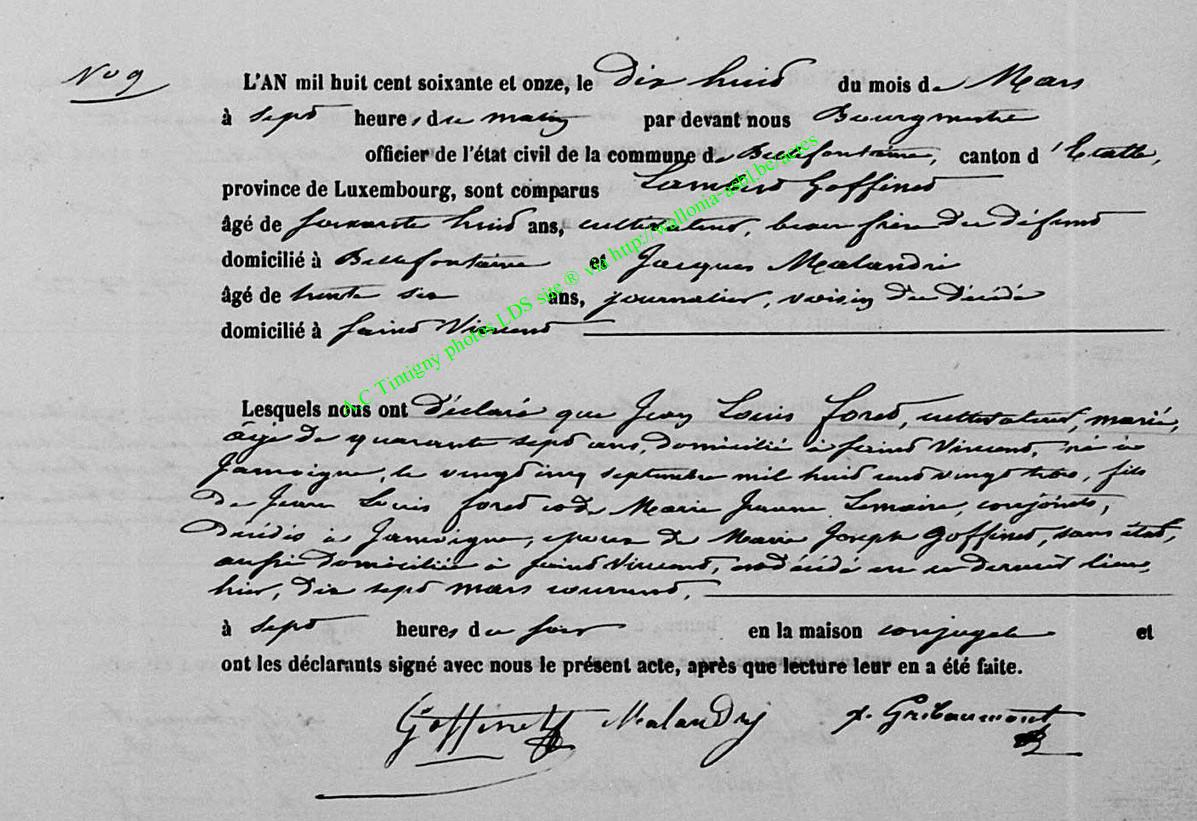 No 9
L'AN mil huit cent soixante et onze, le dix huit du mois de Mars
à sept heures du matin par devant nous Bourgmestre
officier de l'état civil de la commune de Bellefontaine, canton d'Etalle,
province de Luxembourg, sont comparus Lambert Goffinet
âgé de soixante huit ans, cultivateur, beau frère du défunt
domicilié à Bellefontaine et Jacques Malandri
âgé de trente six ans, journalier, voisin du décédé
domicilié à Saint Vincent
Lesquels nous ont déclaré que Jean Louis Foret, cultivateur, marié,
âgé de quarante sept ans, domicilié à Saint Vincent, né à
Jamoigne, le vingt cinq septembre mil huit cent vingt trois, fils
de Jean Louis Foret et de Marie Jeanne Lemaire, conjoints,
décédés à Jamoigne, époux de Marie Joseph Goffinet, sans état,
aussi domiciliée à Saint Vincent, est décédé en ce dernier lieu,
hier, dix sept mars courant,
à sept heures du soir en la maison conjugale et
ont les déclarants signé avec nous le présent acte, après que lecture leur en a été faite.
Goffinet Malandry Gribaumont
A.C Tintigny photos LDS site ® via http://wallonia-asbl.be/actes